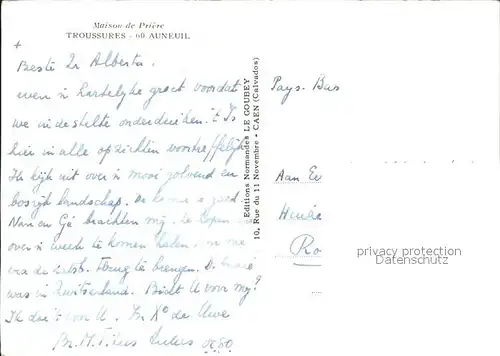 Maison de Prière
TROUSSURES - 60 AUNEUIL
+
Beste Zr Alberta,
even 'n hartelijke groet voordat
we in de stilte onderduiken. 't Is
hier in alle opzichten voortreffelijk
Ik kijk uit over 'n mooi golvend en
bosrijk landschap. De is goed.
Nan en Gé brachten mij. Ze hopen
over 'n week te komen halen. en me
terug te brengen. D.
was in Zwitserland. Bidt U voor mij?
Ik doe 't voor U. In Xº de Uwe
Br. M. Titus
Editions Normandes LE GOUBEY
10, Rue du 11 Novembre - CAEN (Calvados)
Pays-Bas
Aan Ee
Ro
privacy protection
Datenschutz